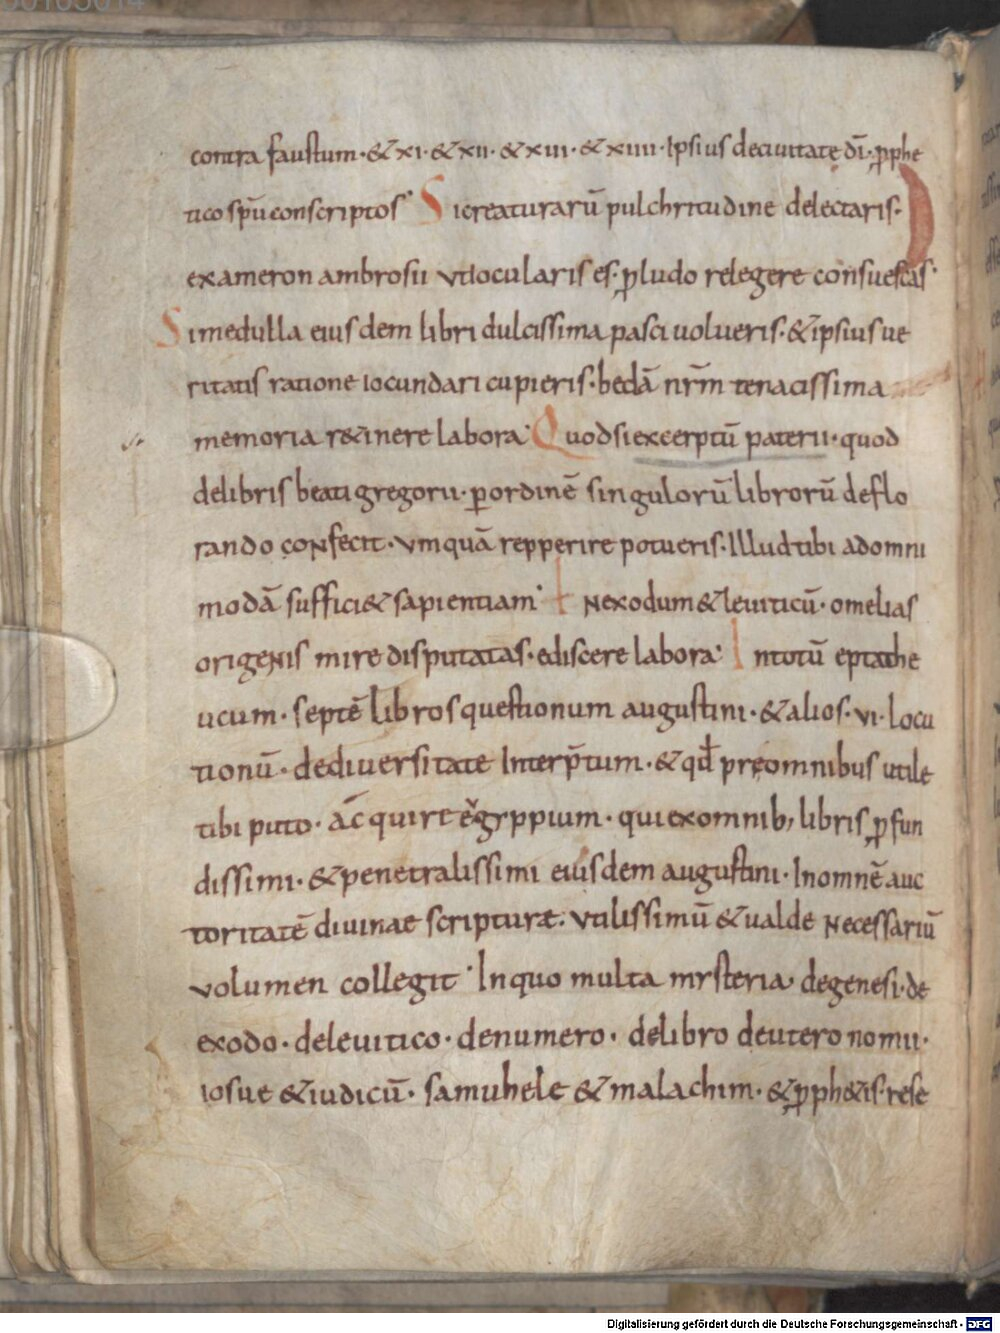 contra faustum · & xi · & xii · & xiii · & xiiii · Ipsius deciuitatę dī · ꝓphe
tico spū conscriptos · Si creaturarū pulchritudine delectaris ·
exameron ambrosii vt iocularis es · ꝑ ludo relegere consuescas ·
Si medulla eiusdem libri dulcissima pasci uolueris · & ipsius ue
ritatis ratione iocundari cupieris · bedā nr̄m tenacissima
memoria r&inere labora · Quodsi excerptū paterii · quod
delibris beati gregorii · ꝑ ordinē singulorū librorū deflo
rando confecit · vmquā repperire potueris · Illud tibi ad omni
modā suffici& sapientiam · In exodum & leuiticū · omelias
origenis mire disputatas · ediscere labora · In totū eptathe
ucum · septē libros questionum augustini · & alios · vi · locu
tionū · dediuersitate Interp̄tum · & qđ pręomnibus utile
tibi puto · acquire eugyppium · qui exomnib; libris ꝓfun
dissimi · & penetralissimi eiusdem augustini · In omnē auc
toritatē diuinae scripturę · vtilissimū & ualde necessariū
volumen collegit · In quo multa mysteria · degenesi · de
exodo · deleuitico · denumero · delibro deuteronomii ·
iosue & iudicū · samuhele & malachim · & ꝓph&is · rese
Digitalisierung gefördert durch die Deutsche Forschungsgemeinschaft · DFG